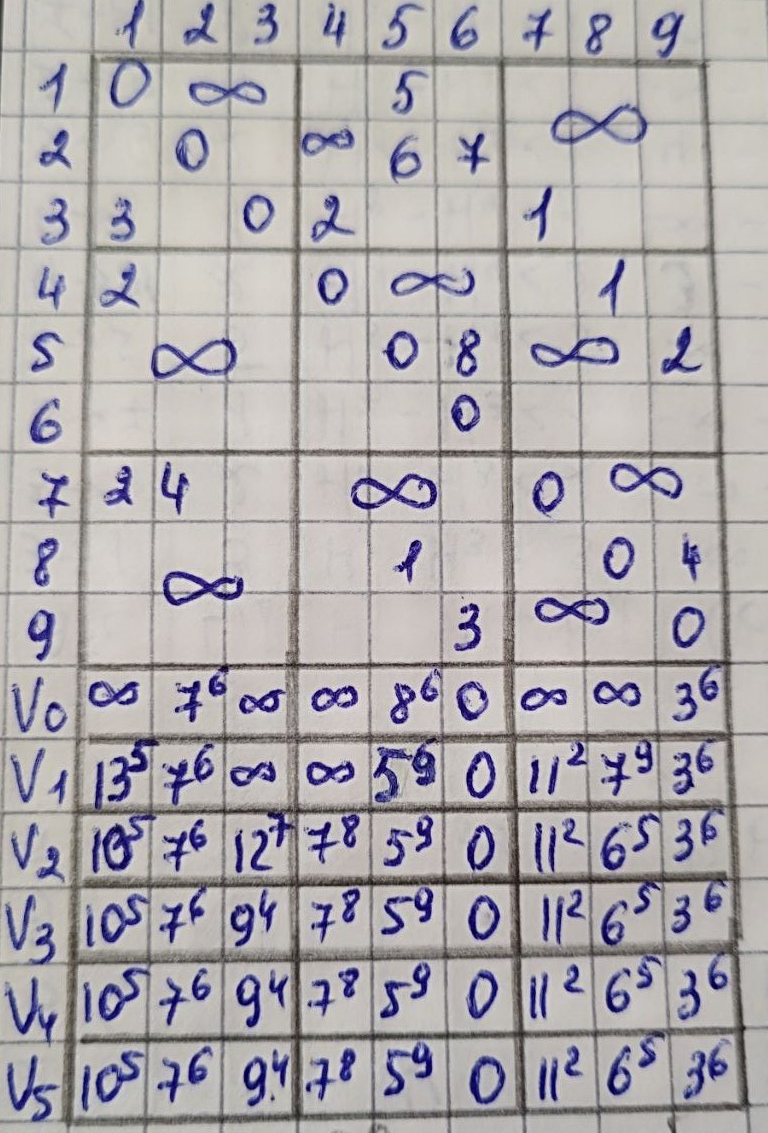 1 2 3 4 5 6 7 8 9
1 0 ∞ 5 ∞
2 0 ∞ 6 7
3 3 0 2 1
4 2 0 ∞ 1
5 ∞ 0 8 ∞ 2
6 0
7 2 4 ∞ 0 ∞
8 ∞ 1 0 4
9 3 ∞ 0
V₀ ∞ 7⁶ ∞ ∞ 8⁶ 0 ∞ ∞ 3⁶
V₁ 13⁵ 7⁶ ∞ ∞ 5⁹ 0 11² 7⁹ 3⁶
V₂ 10⁵ 7⁶ 12⁷ 7⁸ 5⁹ 0 11² 6⁵ 3⁶
V₃ 10⁵ 7⁶ 9⁴ 7⁸ 5⁹ 0 11² 6⁵ 3⁶
V₄ 10⁵ 7⁶ 9⁴ 7⁸ 5⁹ 0 11² 6⁵ 3⁶
V₅ 10⁵ 7⁶ 9⁴ 7⁸ 5⁹ 0 11² 6⁵ 3⁶